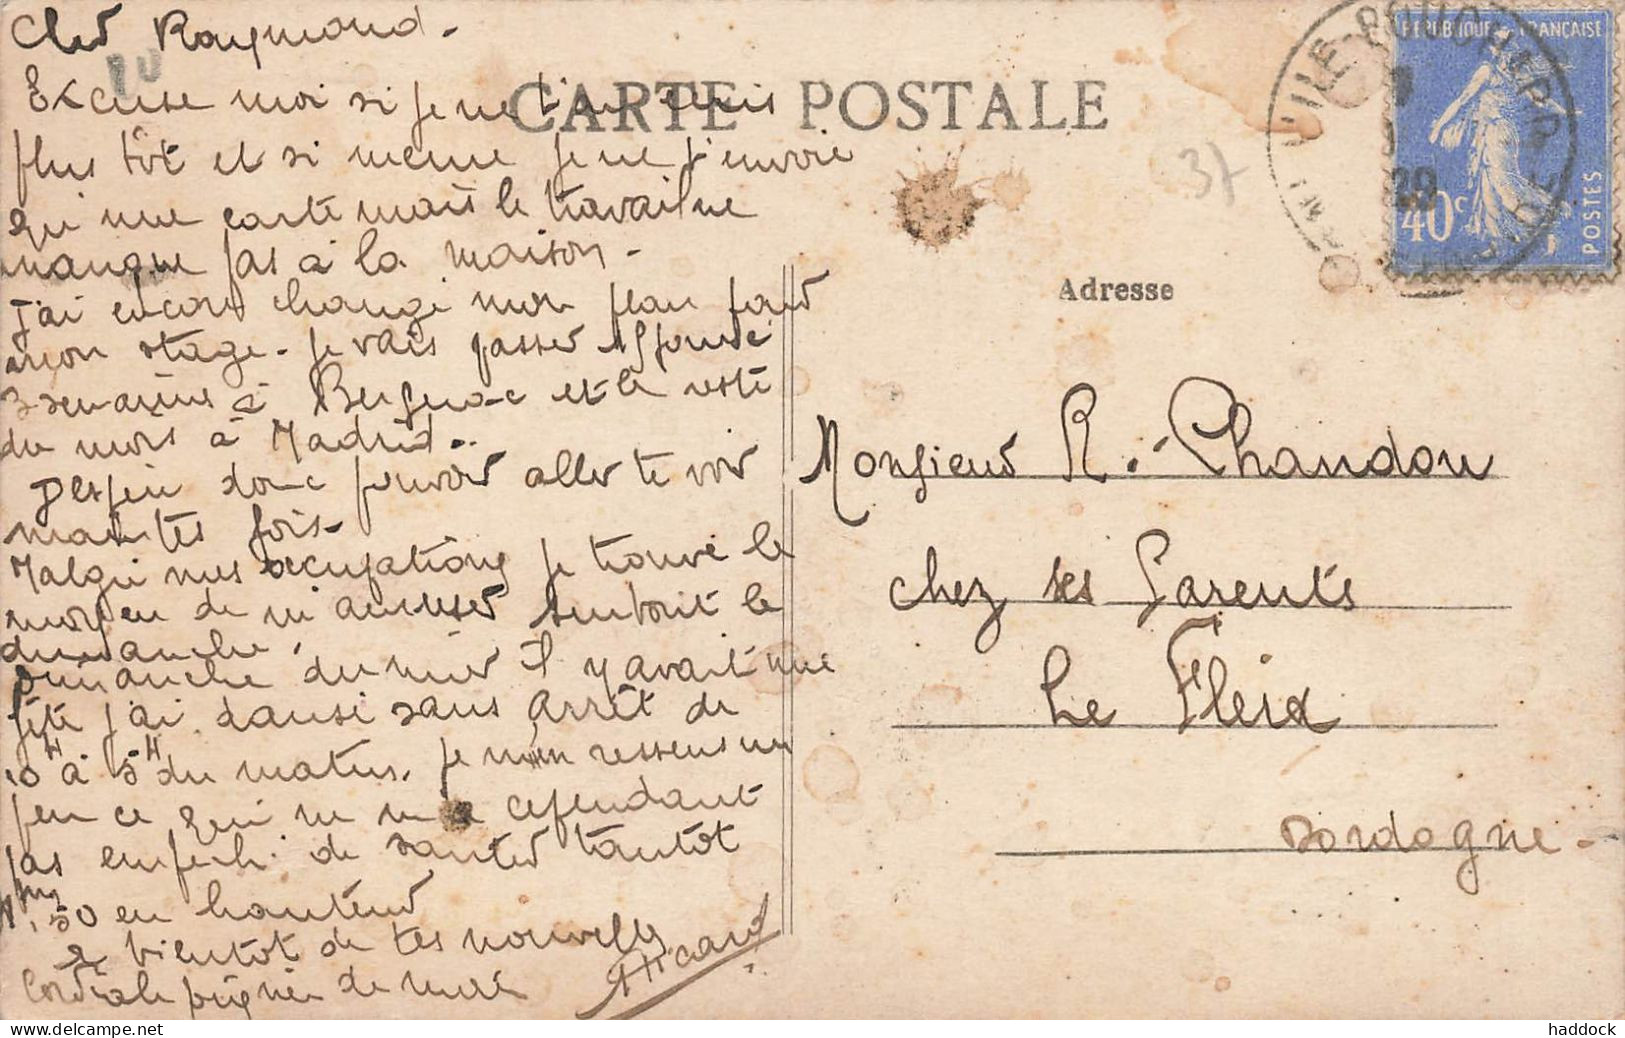 Cher Raymond.
Excuse moi si je ne t'
plus tôt et si meme je ne t'envoie
qu'une carte mais le travail ne
manque pas à la maison.
J'ai encore changé mon plan pour
mon stage. Je vais passer
3 semaines à Bergerac et le reste
du mois à Madrid..
J'espère donc pouvoir aller te voir
maintes fois.
Malgré mes occupations je trouve le
moyen de m'amuser surtout le
dimanche.
Dimanche dernier il y avait une
fête j'ai dansé sans arrêt de
10H à 5H du matin. Je m'en ressens un
peu ce qui ne m'a cependant
pas empeché de sauter tantôt
1m,50 en hauteur
A bientôt de tes nouvelles
Cordiale poignée de main
CARTE POSTALE
37
REPUBLIQUE FRANÇAISE
40c
POSTES
29
Adresse
Monsieur R. Chandou
chez ses Parents
Le Fleix
Dordogne-
www.delcampe.net
haddock